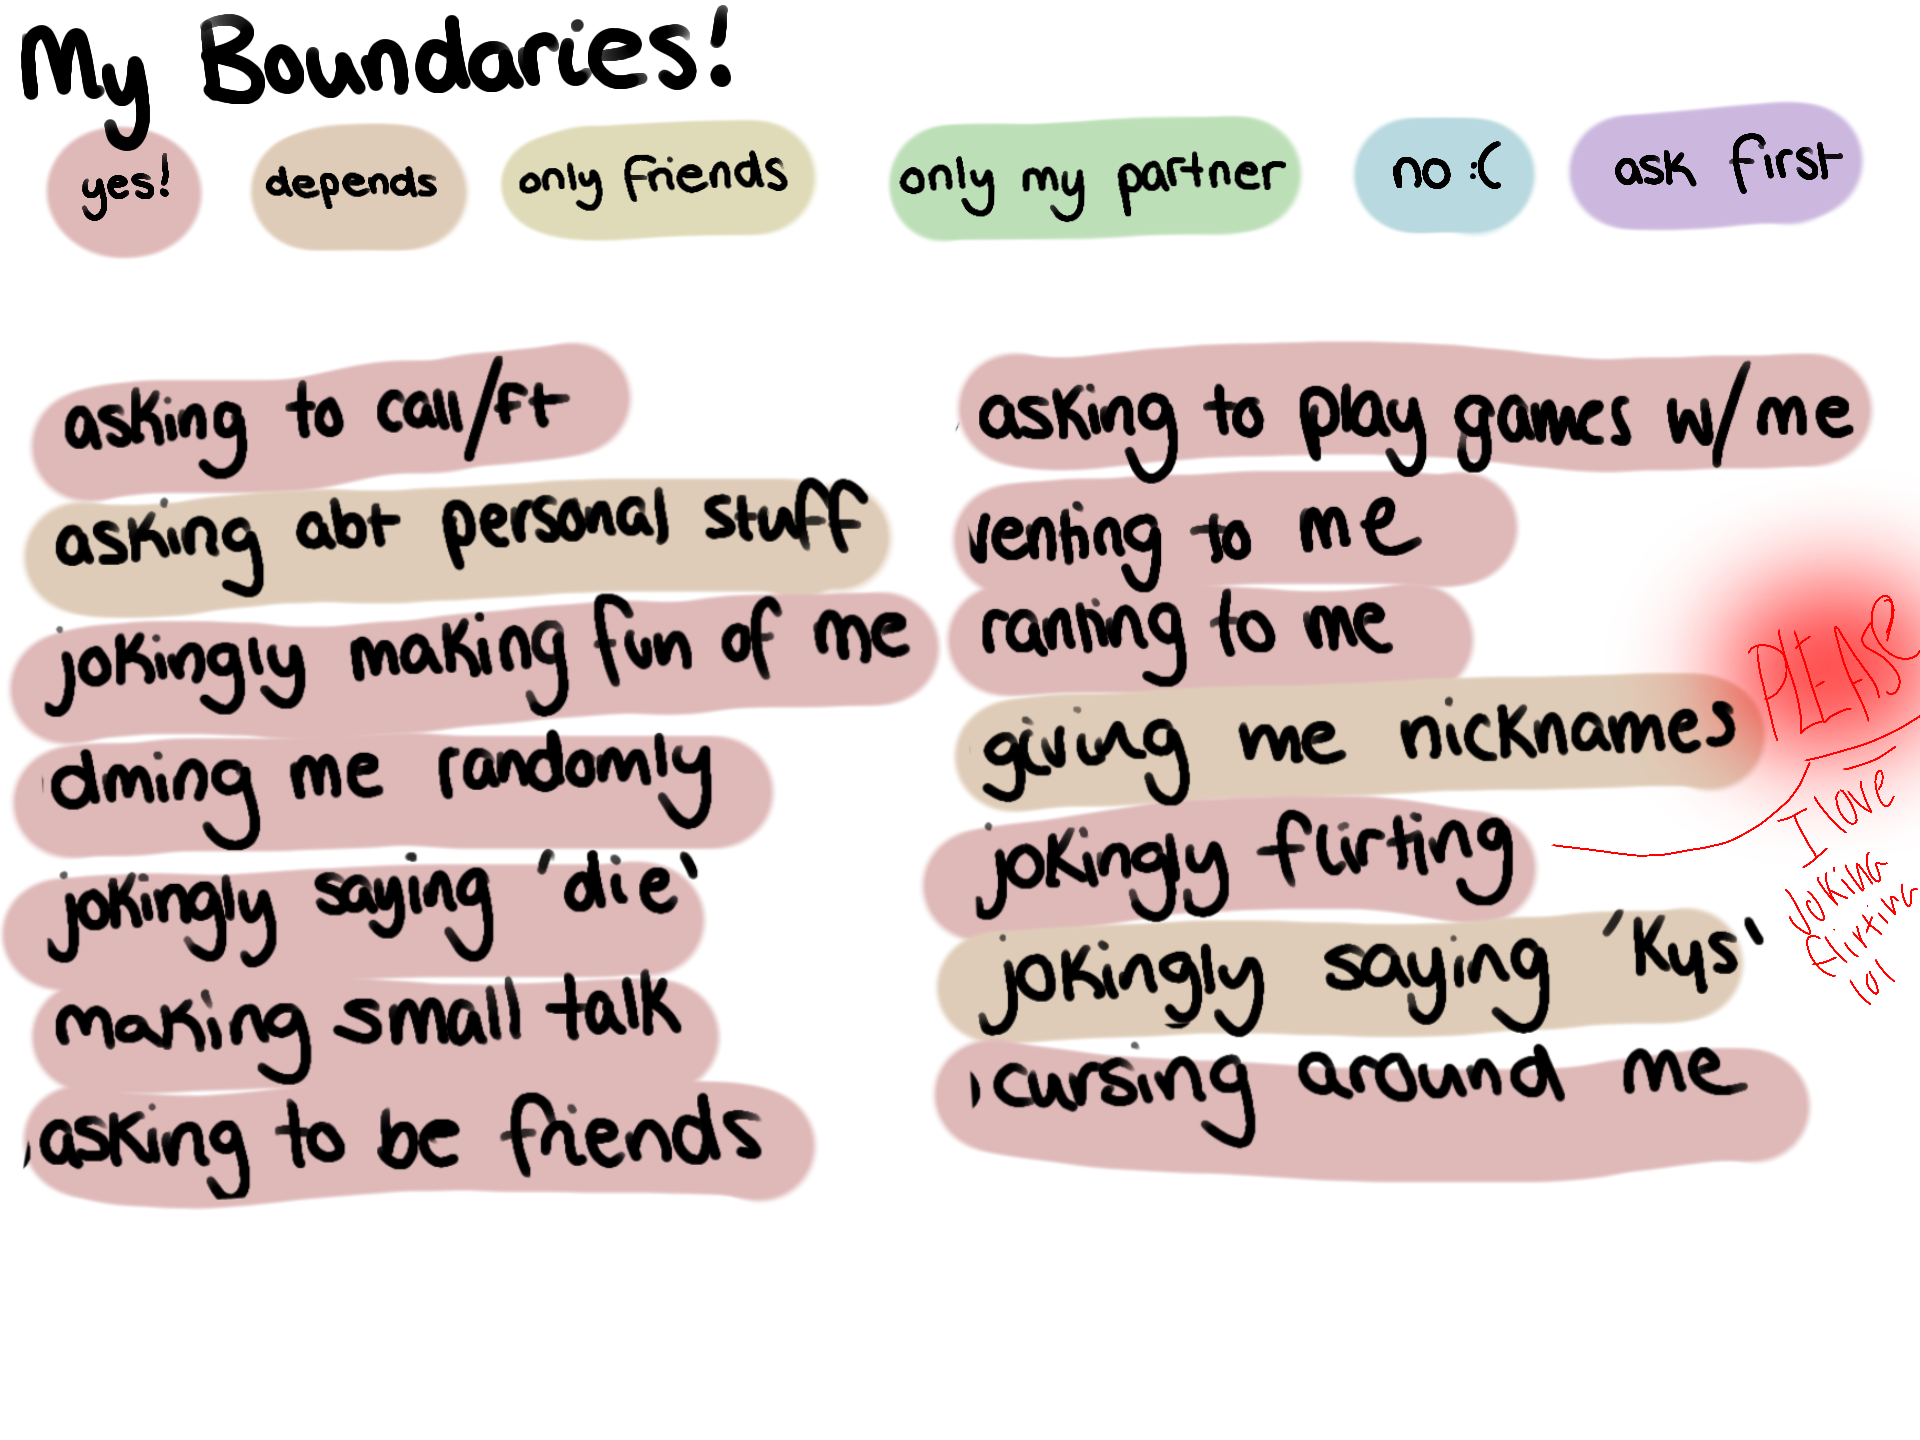 My Boundaries!
yes! depends only friends only my partner no :( ask first
asking to call/ft
asking abt personal stuff
jokingly making fun of me
dming me randomly
jokingly saying 'die'
making small talk
asking to be friends
asking to play games w/me
venting to me
ranting to me
giving me nicknames
jokingly flirting
jokingly saying 'kys'
cursing around me
PLEASE
I love
joking
flirting
lol